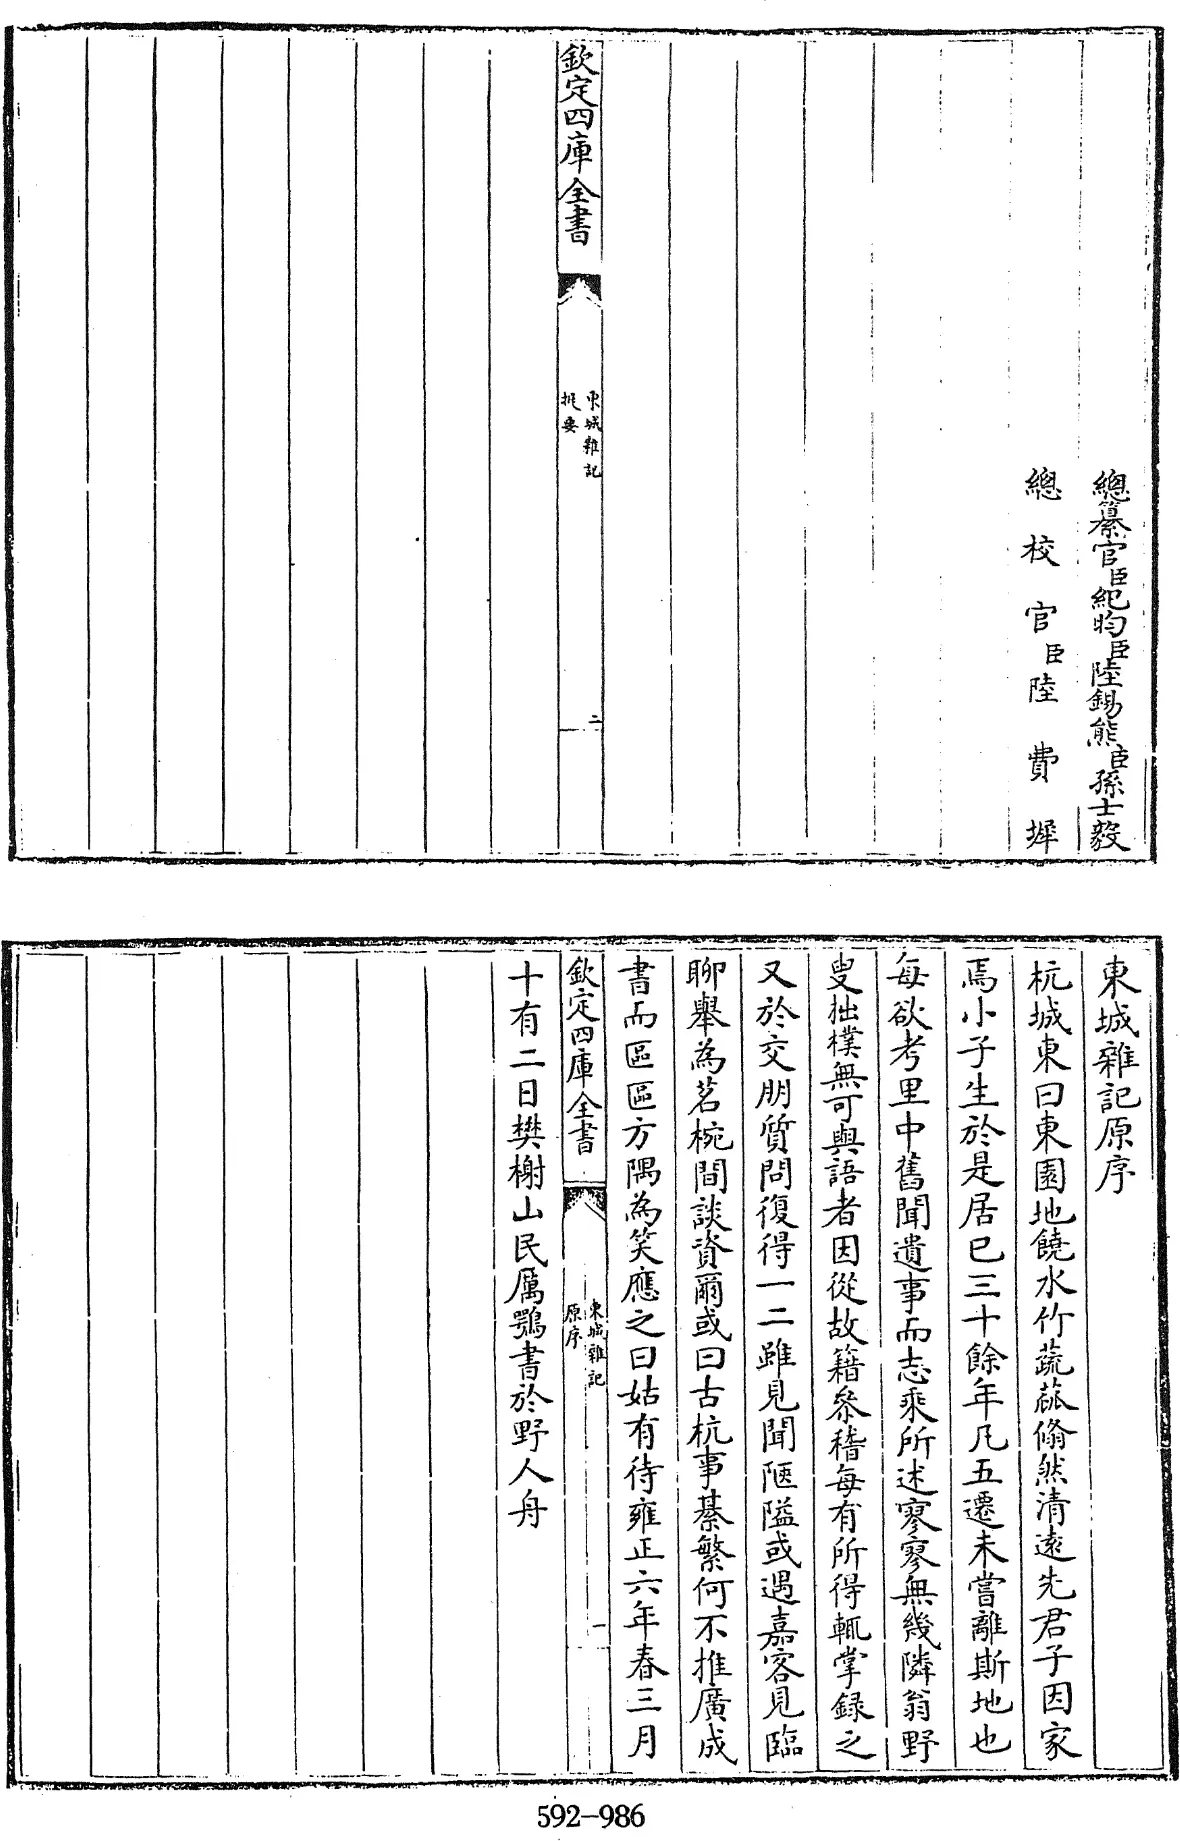 總纂官臣紀昀臣陸錫熊臣孫士毅
總校官臣陸費墀
欽定四庫全書
東城雜記
提要
二
東城雜記原序
杭城東曰東園地饒水竹蔬蓏翛然清遠先君子因家
焉小子生於是居已三十餘年凡五遷未嘗離斯地也
每欲考里中舊聞遺事而志乘所述寥寥無幾隣翁野
叟拙樸無可與語者因從故籍叅稽每有所得輒掌録之
又於交朋質問復得一二雖見聞陋隘或遇嘉客見臨
聊舉為茗椀間談資爾或曰古杭事綦繁何不推廣成
書而區區方隅為笑應之曰姑有待雍正六年春三月
欽定四庫全書
東城雜記
原序
一
十有二日樊榭山民厲鶚書於野人舟
592-986